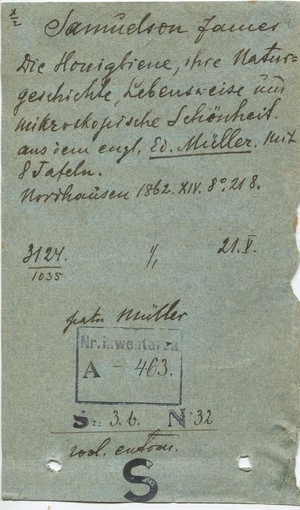 X/2
Samuelson James
Die Honigbiene, ihre Natur-
geschichte, Lebensweise und
mikroskopische Schönheit.
aus dem engl. Ed. Müller. Mit
8 Tafeln.
Nordhausen 1862. XIV. 8º. 218.
3124. 21.V.
1035
patrz Müller
Nr. inwentarza
A - 463.
S 3.6. N 32
entom.
S